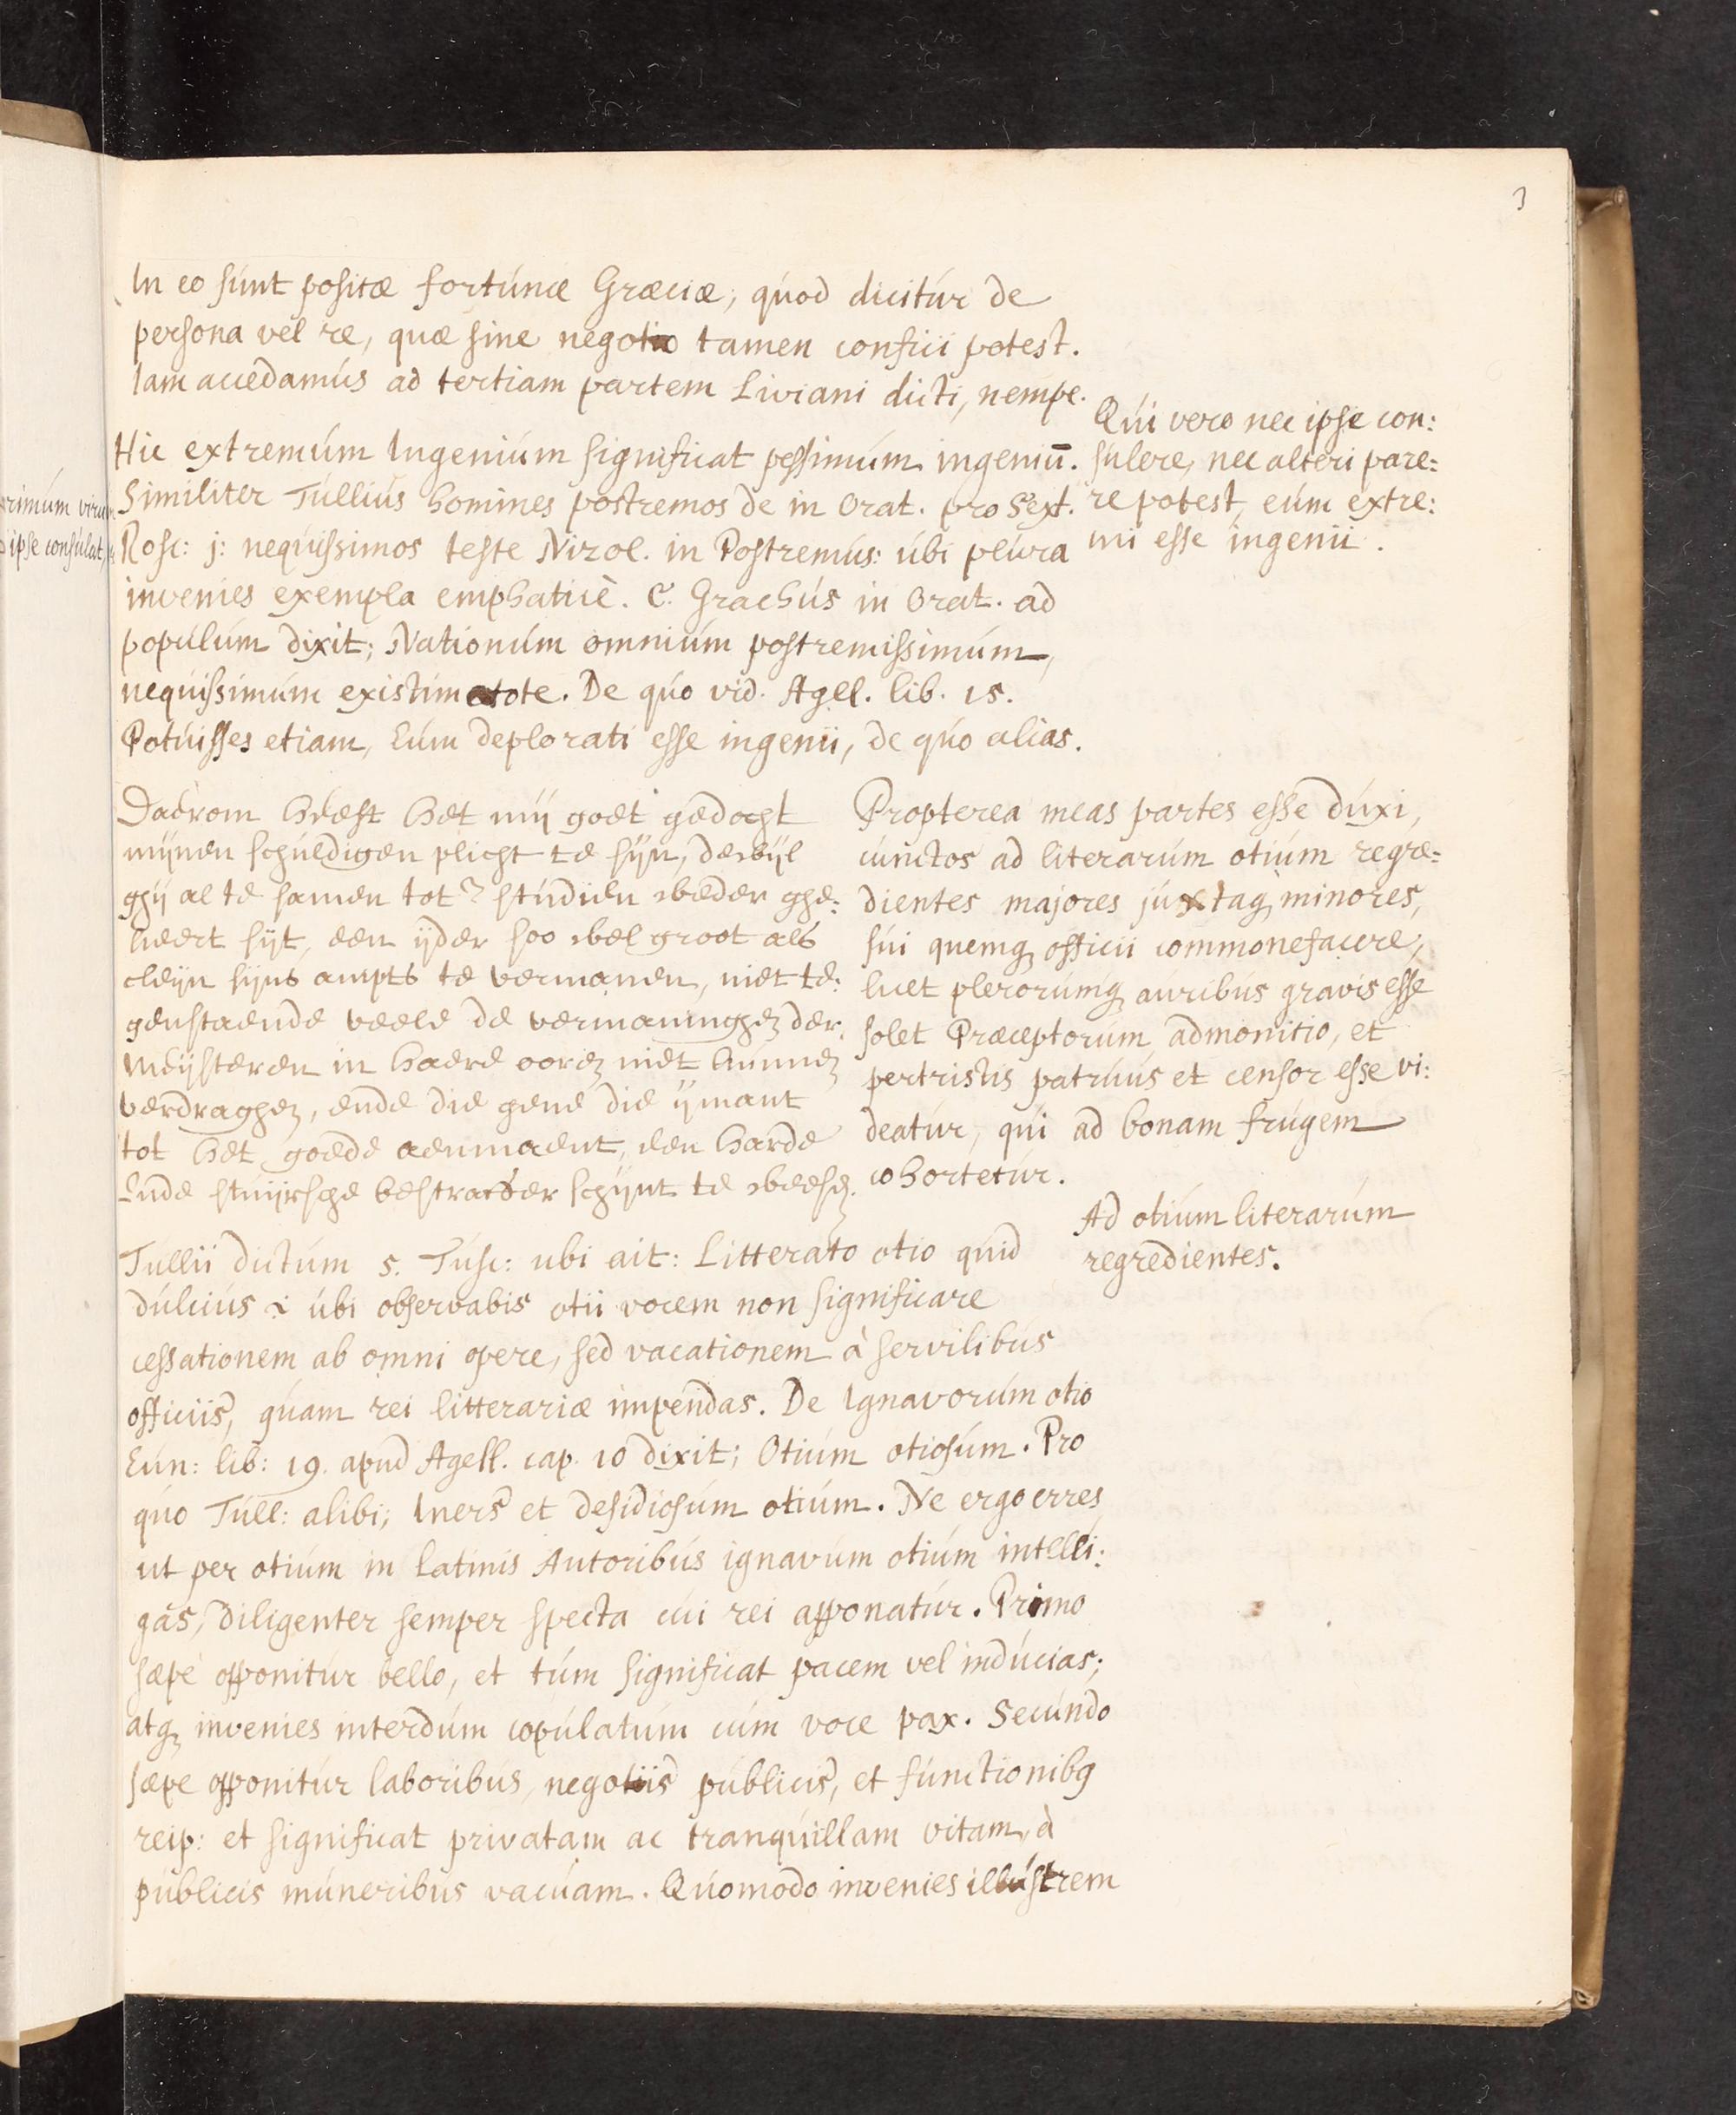 3
In eo sunt positæ fortunæ Græciæ, quod dicitur de
persona vel re, quæ sine negotio tamen confici potest.
Iam accedamus ad tertiam partem Liviani dicti, nempe.
Qui vero nec ipse con:
sulere, nec alteri pare=
re potest, eum extre:
mi esse ingenii.
Hic extremum Ingenium significat pessimum ingeniū.
Similiter Tullius homines postremos de in Orat. pro Sext.
Rosc: j: nequissimos teste Nizol. in Postremus: ubi plura
invenies exempla emphaticè. C. Grachus in Orat. ad
populum dixit; Nationum omnium postremissimum,
nequissimum existimatote. De quo vid. Agell. lib. 15.
Potuisses etiam, Eum deplorati esse ingenii, de quo alias.
Daerom heeft het mij goet gedocht
mijnen schuldigen plicht te sijn, dewijl
ghij al te samen tot studien weder ghe:
keert sijt, een ijder soo wel groot als
cleijn sijns ampts te vermanen, niet te:
genstaende veele de vermaninghen der
Meijsteren in haere ooren niet kunnen
verdraghen, ende die gene die ijmant
tot het goede aenmaent, een harde
Ende stuijrsche bestraffer schijnt te weesen.
Propterea meas partes esse duxi,
cunctos ad literarum otium regre=
dientes majores juxtaq minores,
sui quemq officii commonefacere,
licet plerorumq auribus gravis esse
solet Præceptorum admonitio, et
pertristis patruus et censor esse vi:
deatur, qui ad bonam frugem
cohortetur.
Ad otium literarum
regredientes.
Tullii dictum 5. Tusc: ubi ait: Litterato otio quid
dulcius ¿ ubi observabis otii vocem non significare
cessationem ab omni opere, sed vacationem à servilibus
officiis, quam rei litterariæ impendas. De Ignavorum otio
Eun: lib: 19. apud Agell. cap. 10 dixit; Otium otiosum. Pro
quo Tull: alibi; Iners et desidiosum otium. Ne ergo erres
ut per otium in Latinis Autoribus ignavum otium intelli:
gas, diligenter semper specta cui rei apponatur. Primo
sæpe opponitur bello, et tum significat pacem vel inducias;
atq invenies interdum copulatum cum voce pax. Secundo
sæpe opponitur laboribus, negotiis publicis, et functionibq
reip: et significat privatam ac tranquillam vitam, à
publicis muneribus vacuam. Quomodo invenies illustrem